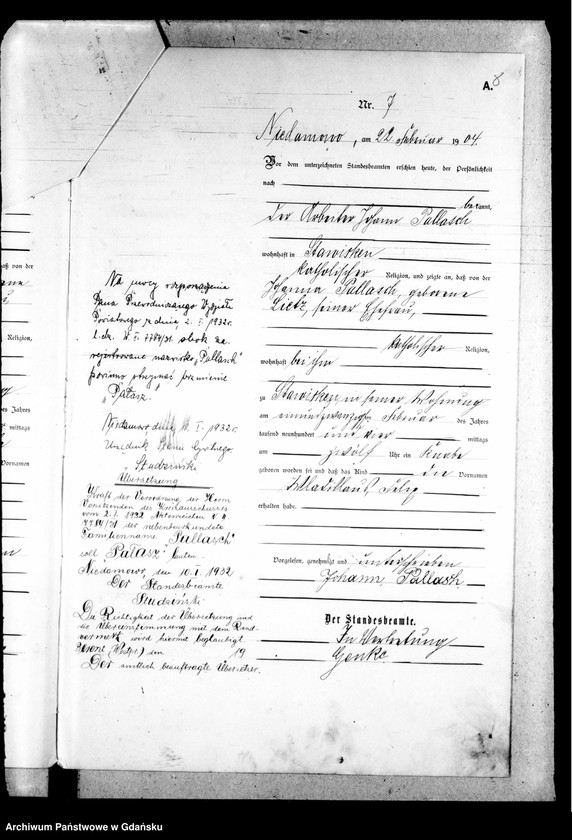 A.
8
Nr. 7
Niedamowo, am 22. Februar 1904.
Vor dem unterzeichneten Standesbeamten erschien heute, der Persönlichkeit
nach
bekannt,
der Arbeiter Johann Pallasch
wohnhaft in Stawisken
katholischer Religion, und zeigte an, daß von der
Johanna Pallasch, geborene
Lietz, seiner Ehefrau,
katholischer Religion,
wohnhaft bei ihm
zu Stawisken in seiner Wohnung
am einundzwanzigsten Februar des Jahres
tausend neunhundert und vier mittags
um zwölf Uhr ein Knabe
geboren worden sei und daß das Kind die Vornamen
erhalten habe.
Vorgelesen, genehmigt und unterschrieben
Johann Pallasch
Der Standesbeamte.
In Vertretung
Genke
Na mocy rozporządzenia
Pana Przewodniczącego Wydziału
Powiatowego z dnia 2. I. 1932 r.
L.dz. W. 7784/31 obok za-
rejestrowane nazwisko "Pallasch"
powinno otrzymać brzmienie
"Pałasz".
Niedamowo dnia 10. I. 1932 r.
Urzędnik Stanu Cywilnego
Studziński
Übersetzung
Kraft der Verordnung des Herrn
Vorsitzenden des Kreisausschusses
vom 2. I. 1932 Aktenzeichen W.
7784/31 der nebenbeurkundete
Familienname "Pallasch"
soll "Pałasz" lauten.
Niedamowo, den 10. I. 1932
Der Standesbeamte
Studziński
Die Richtigkeit der Übersetzung und
die Übereinstimmung mit dem Rand-
vermerk wird hiermit beglaubigt
Berent (Westpr.) den 19
Der amtlich beauftragte Übersetzer.
aß von der
Religion,
des Jahres
mittags
Vornamen
Archiwum Państwowe w Gdańsku